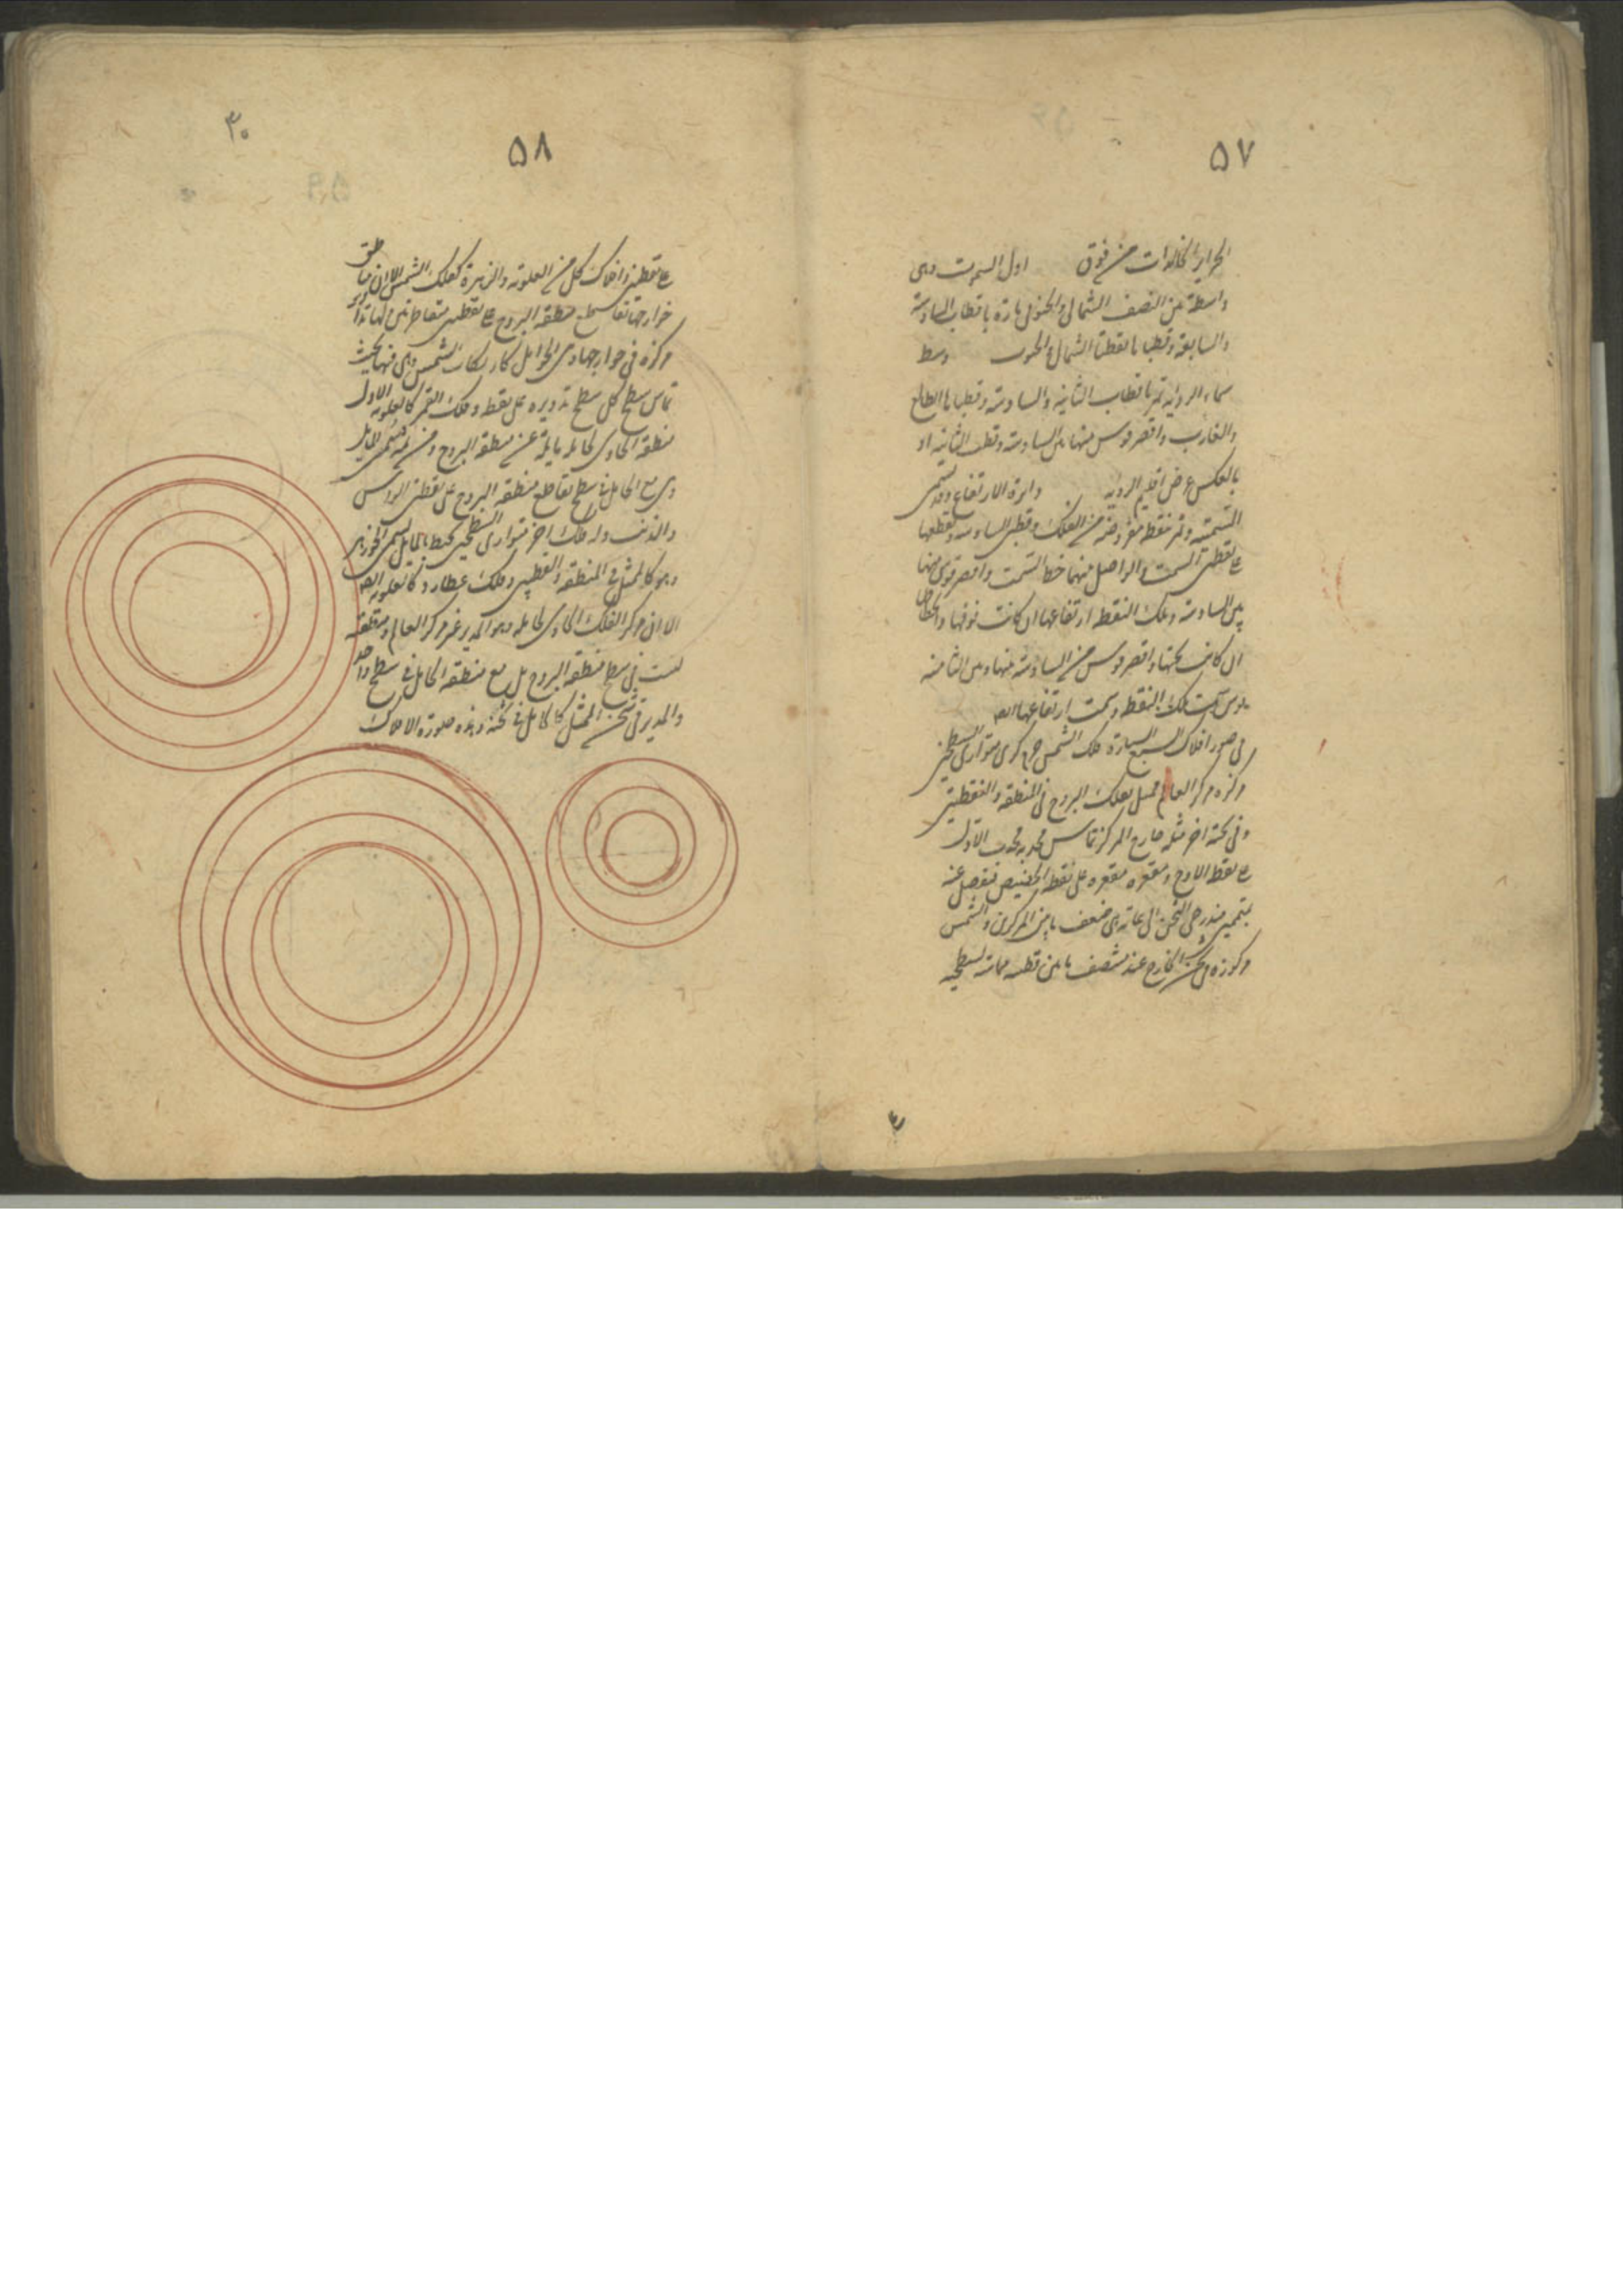 ٥٧
الجزاير الخالدات من فوق اول السموت وهى
واسطة بين النصف الشمالى والجنوبى مارة باقطاب السادسة
والسابعة وقطباها نقطتا الشمال والجنوب وسط
سماء الروية تمر باقطاب الثانية والسادسة وقطباها الطالع
والغارب واقصر قوس منها بين السادسة وقطب الثانية او
بالعكس عرض اقليم الروية دايرة الارتفاع وقد تسمى
السمتية وتمر بنقطة مفروضة من الفلك وقطبى السادسة وتقطعها
على نقطتى السمت والواصل بينهما خط السمت واقصر قوس منها
بين السادسة وتلك النقطة ارتفاعها ان كانت فوقها وانحطاطها
ان كانت تحتها واقصر قوس من السادسة بينها وبين الثامنة
قوس سمت تلك النقطة وسمت ارتفاعها
فى صور افلاك السبع السيارة فلك الشمس جرم كرى متوازى السطحين
مركزه مركز العالم ممثل لفلك البروج فى المنطقة والقطبين
وفى ثخنه اخر مثله خارج المركز تماس محدبه محدب الاول
على نقطة الاوج ومقعره مقعره على نقطة الحضيض فيفصل عنه
بمتممين متدرجى الثخن الى غاية هى ضعف ما بين المركزين والشمس
مركوزة فى ثخن الخارج عند منتصف ما بين قطبيه مماسة لسطحيه
٥٨
٣٠
على نقطتين وافلاك كل من العلوية والزهرة كفلك الشمس الا ان مناطق
خوارجها تقاطع سطح منطقة البروج على نقطتين متقاطرتين ولها تداوير
مركوزة فى خوارجها وهى الحوامل كارتكاز الشمس وهى فيها بحيث
تماس سطح كل سطح تدويره على نقطة وفلك القمر كالعلوية الا ان
منطقة الحاوى لحامله مايلة عن منطقة البروج ومن ثم يسمى المايل
وهى مع الحامل فى سطح تقاطع منطقة البروج على نقطتى الراس
والذنب وله فلك اخر متوازى السطحين محيط بالمايل يسمى الجوزهر
وهو كالممثل فى المنطقة والقطبين وفلك عطارد كالعلوية
الا ان مركز الفلك الحاوى لحامله وهو المدير غير مركز العالم ومنطقته
ليست فى سطح منطقة البروج بل مع منطقة الحامل فى سطح واحد
والمدير فى ثخن الممثل كالحامل فى ثخنه وهذه صورة الافلاك